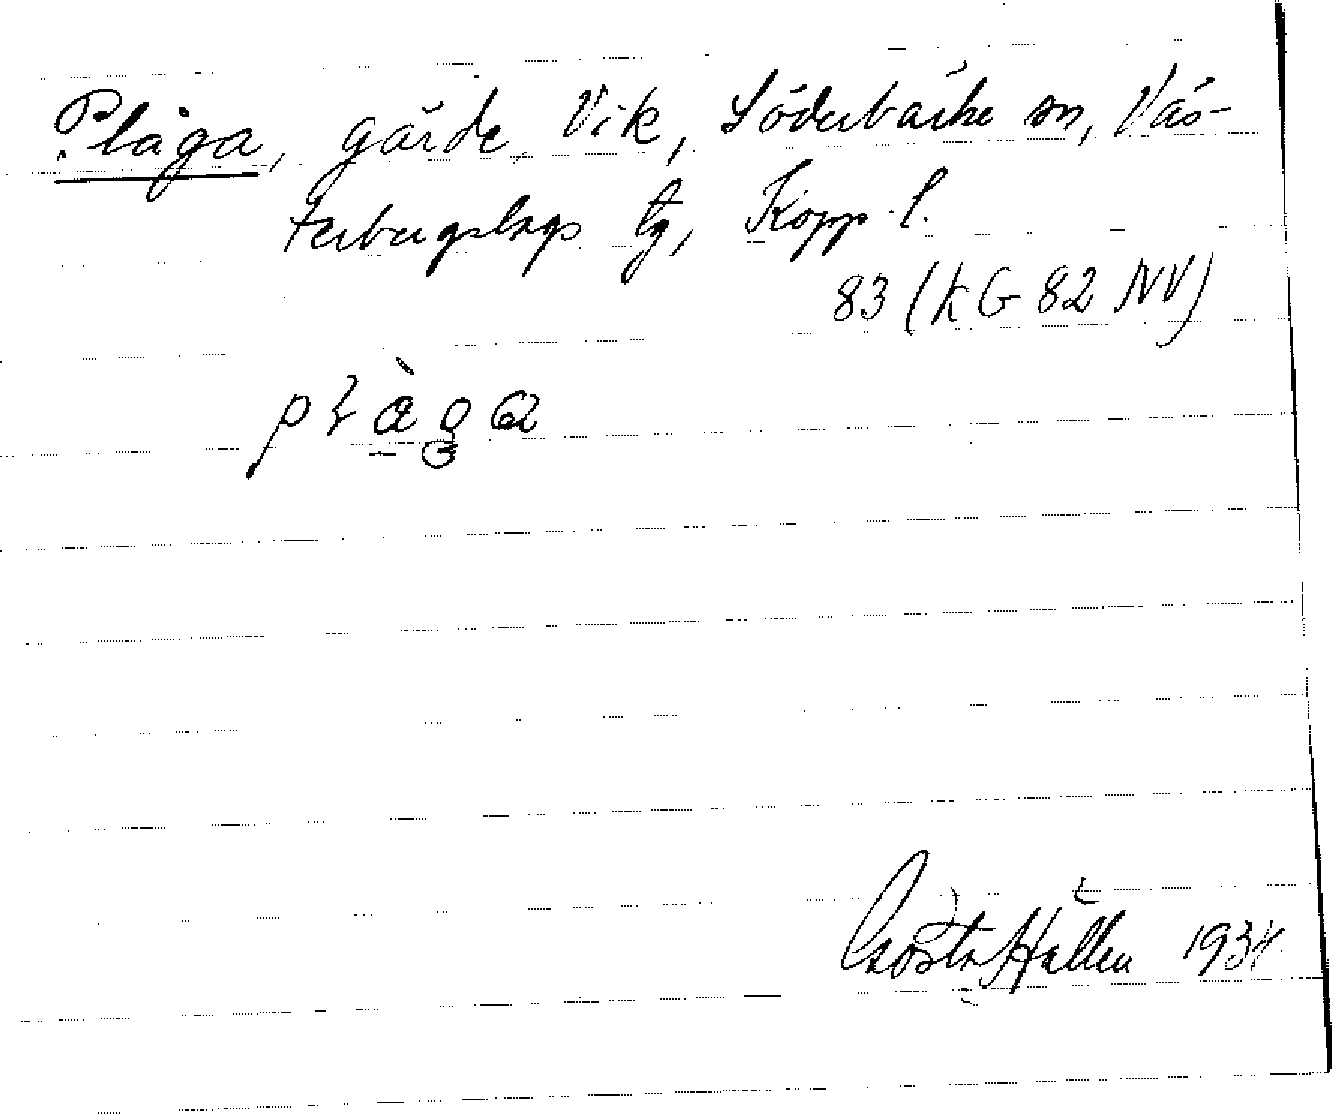 Plåga, gärde, Vik, Söderbärke sn, Väs-
terbergslags tg, Kopp. l.
83 (KG 82 NV)
Gösta Hallen 1934